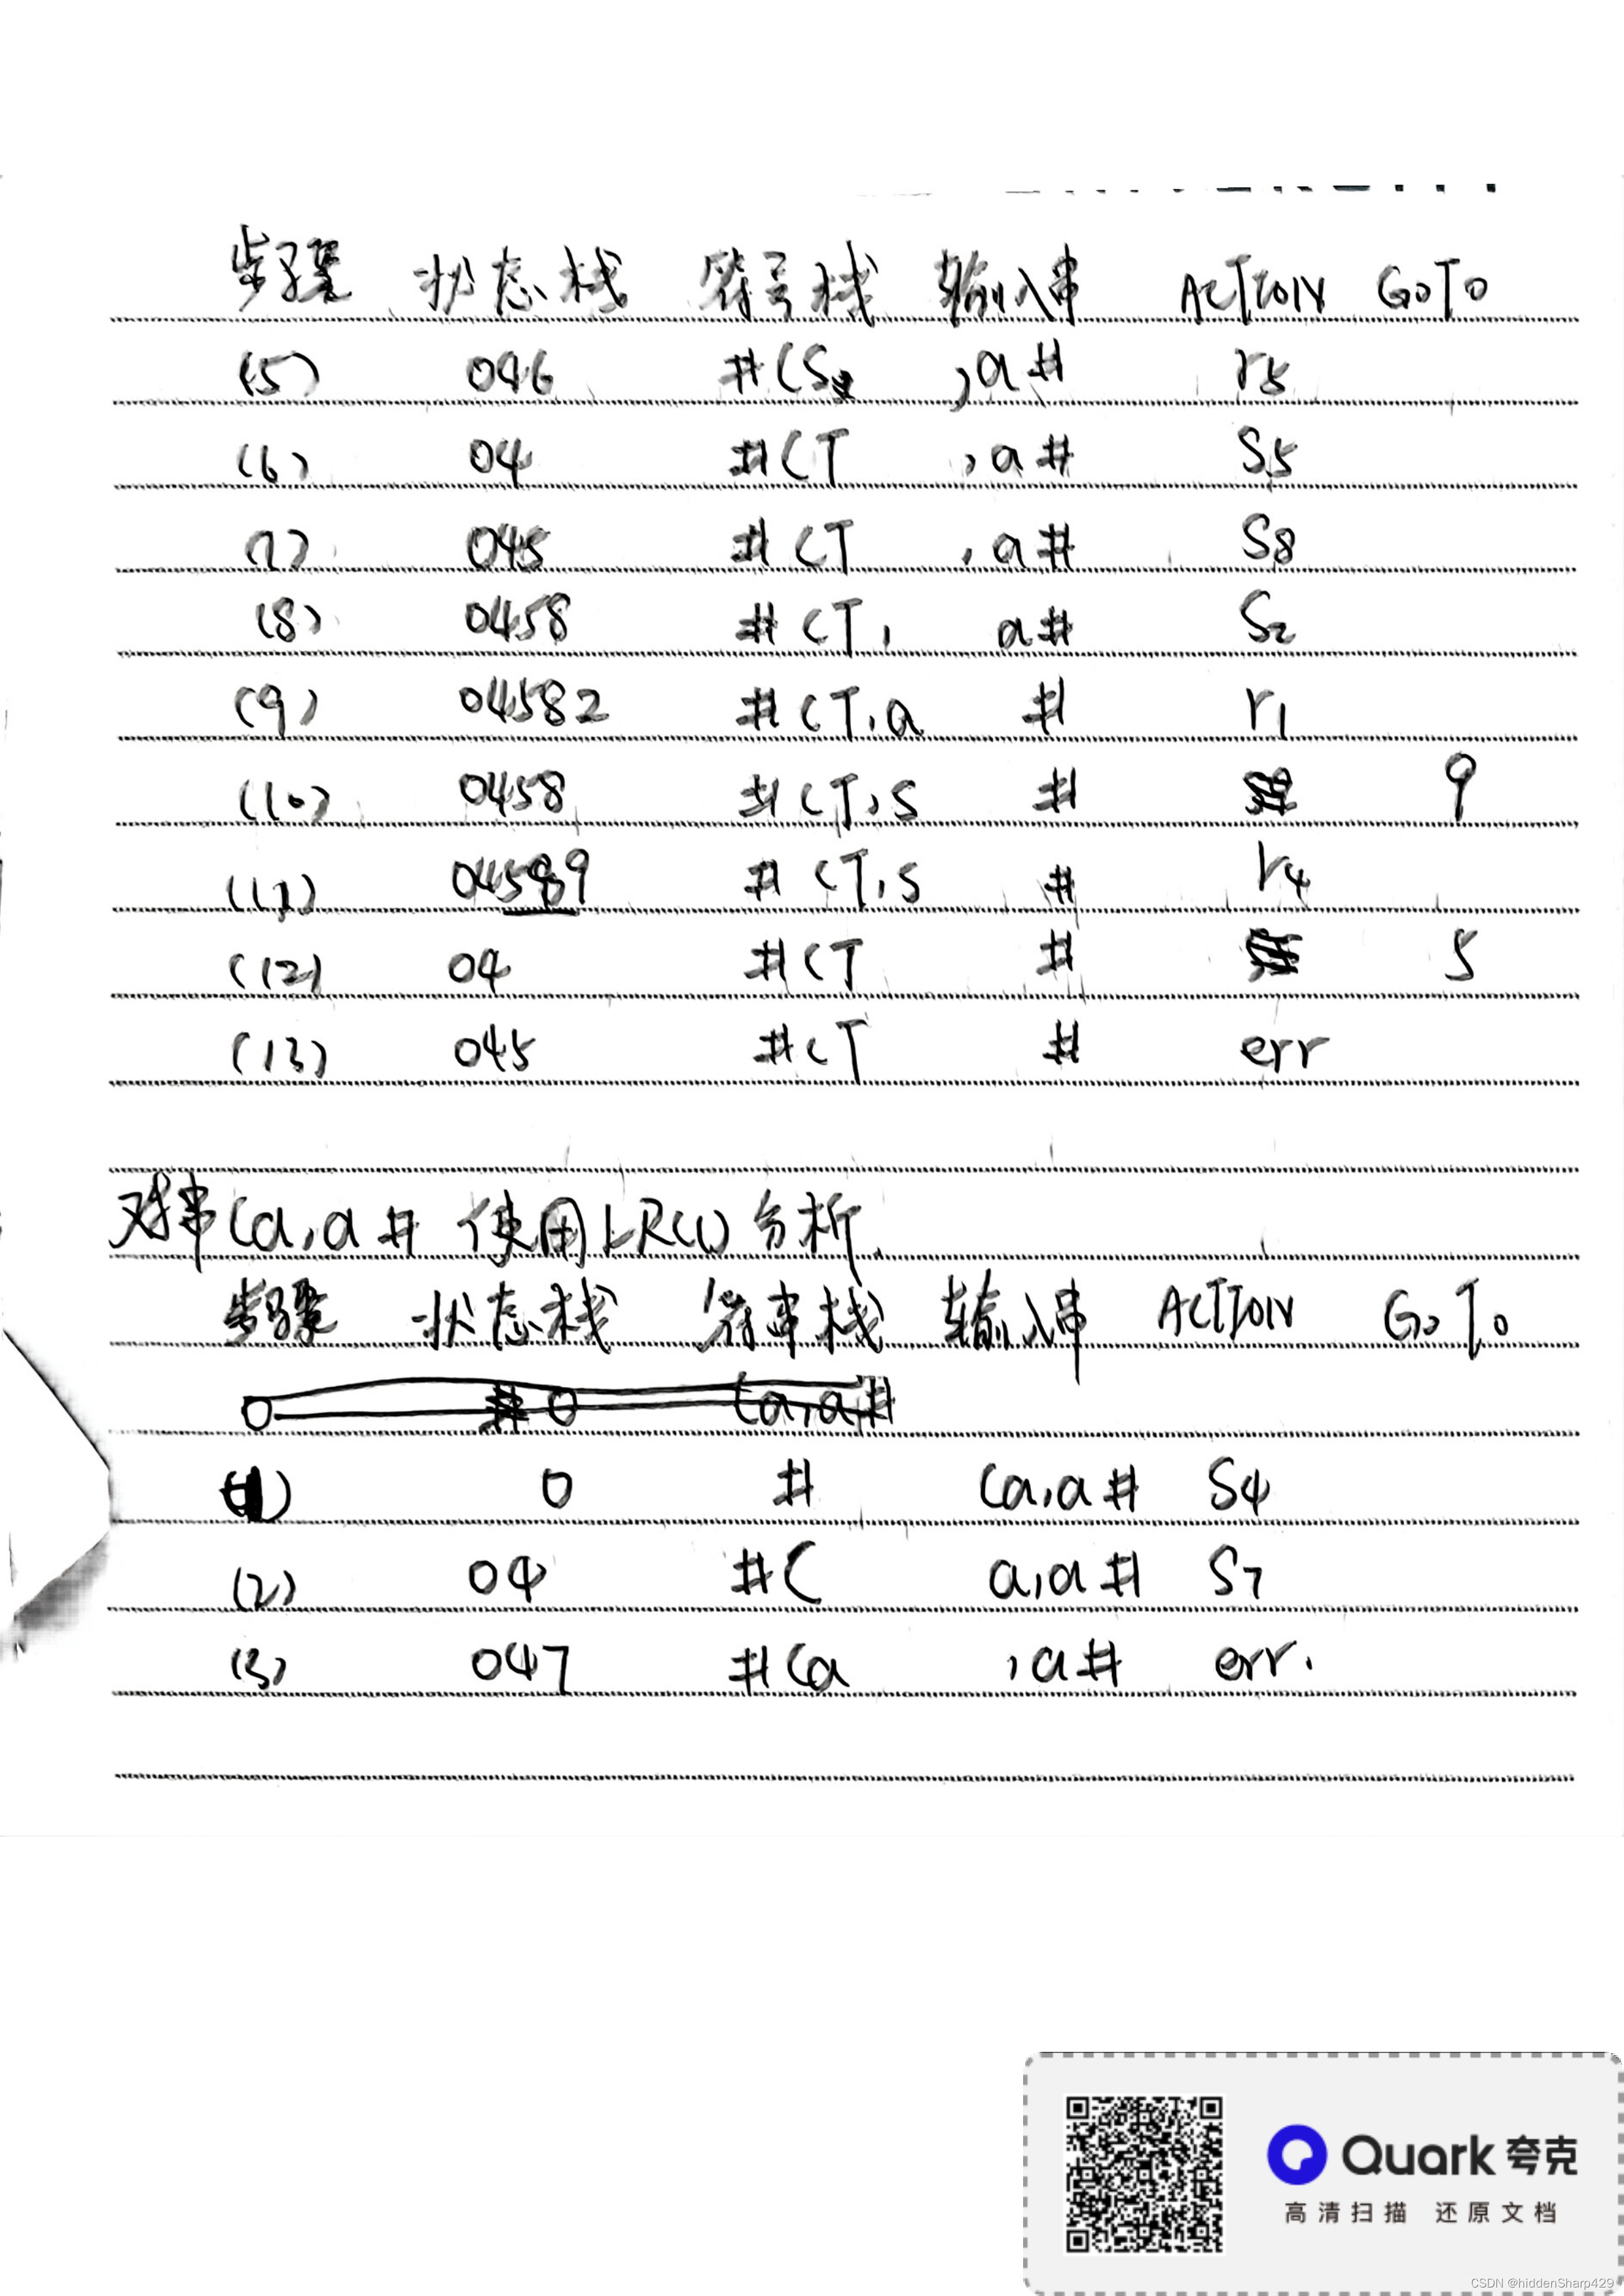 步骤 状态栈 符号栈 输入串 ACTION GOTO
(5) 046 #(S ,a# r5
(6) 04 #(T ,a# S5
(7) 045 #(T ,a# S8
(8) 0458 #(T, a# S2
(9) 04582 #(T,a # r1
(10) 0458 #(T,S # 9
(11) 04589 #(T,S # r4
(12) 04 #(T # 5
(13) 045 #(T # err
对串(a,a# 使用LR(1)分析.
步骤 状态栈 符串栈 输入串 ACTION GOTO
0 # 0 (a,a#
(1) 0 # (a,a# S4
(2) 04 #( a,a# S7
(3) 047 #(a ,a# err.
Quark 夸克
高清扫描 还原文档
CSDN @hiddenSharp429